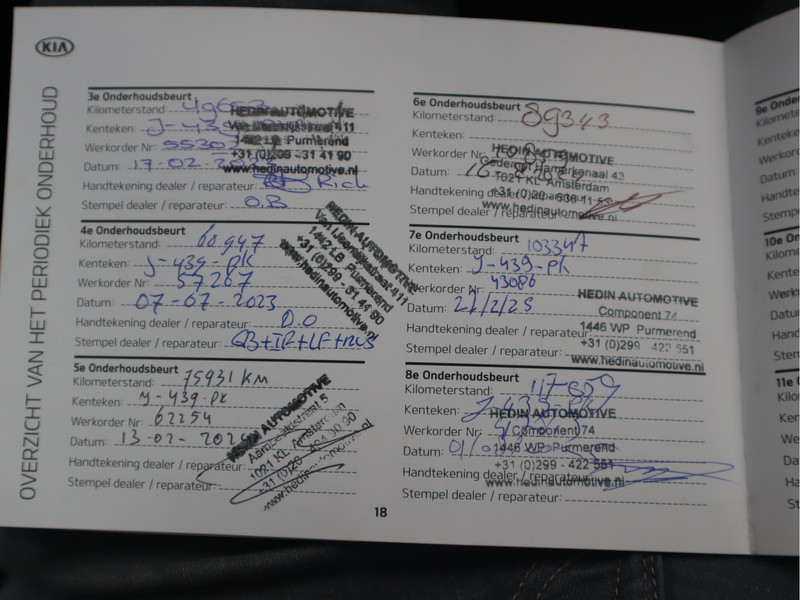 KIA
OVERZICHT VAN HET PERIODIEK ONDERHOUD
3e Onderhoudsbeurt
Kilometerstand:
Kenteken: J-439-
Werkorder Nr: 55307
Datum: 17-02-
Handtekening dealer / reparateur: Rich
Stempel dealer / reparateur: O.B
HEDIN AUTOMOTIVE
1442 LB Purmerend
+31 (0)299 - 31 41 90
www.hedinautomotive.nl
4e Onderhoudsbeurt
Kilometerstand: 60947
Kenteken: J-439-PK
Werkorder Nr: 57267
Datum: 07-07-2023
Handtekening dealer / reparateur: D.O
Stempel dealer / reparateur:
HEDIN AUTOMOTIVE
Van IJsendijkstraat 411
1442 LB Purmerend
+31 (0)299 - 31 41 90
www.hedinautomotive.nl
5e Onderhoudsbeurt
Kilometerstand: 75931 KM
Kenteken: J-439-PK
Werkorder Nr: 62254
Datum: 13-02-2024
Handtekening dealer / reparateur:
Stempel dealer / reparateur:
HEDIN AUTOMOTIVE
1021 KL Amsterdam
6e Onderhoudsbeurt
Kilometerstand: 89343
Kenteken:
Werkorder Nr:
Datum: 16
Handtekening dealer / reparateur:
Stempel dealer / reparateur:
HEDIN AUTOMOTIVE
Gedempt Hamerkanaal 43
1021 KL Amsterdam
www.hedinautomotive.nl
7e Onderhoudsbeurt
Kilometerstand: 103347
Kenteken: J-439-PK
Werkorder Nr: 43086
Datum: 21/2/25
Handtekening dealer / reparateur:
Stempel dealer / reparateur:
HEDIN AUTOMOTIVE
Component 74
1446 WP Purmerend
+31 (0)299 - 422 551
www.hedinautomotive.nl
8e Onderhoudsbeurt
Kilometerstand:
Kenteken:
Werkorder Nr:
Datum:
Handtekening dealer / reparateur:
Stempel dealer / reparateur:
HEDIN AUTOMOTIVE
Component 74
1446 WP Purmerend
+31 (0)299 - 422 551
www.hedinautomotive.nl
18
9e On
Kilome
Kentek
Werko
Datum
Handte
Stempe
10e On
Kilome
Kente
Werk
Datum
Hand
Stem
11e
Kilo
Ken
We
Dat
Ha
St